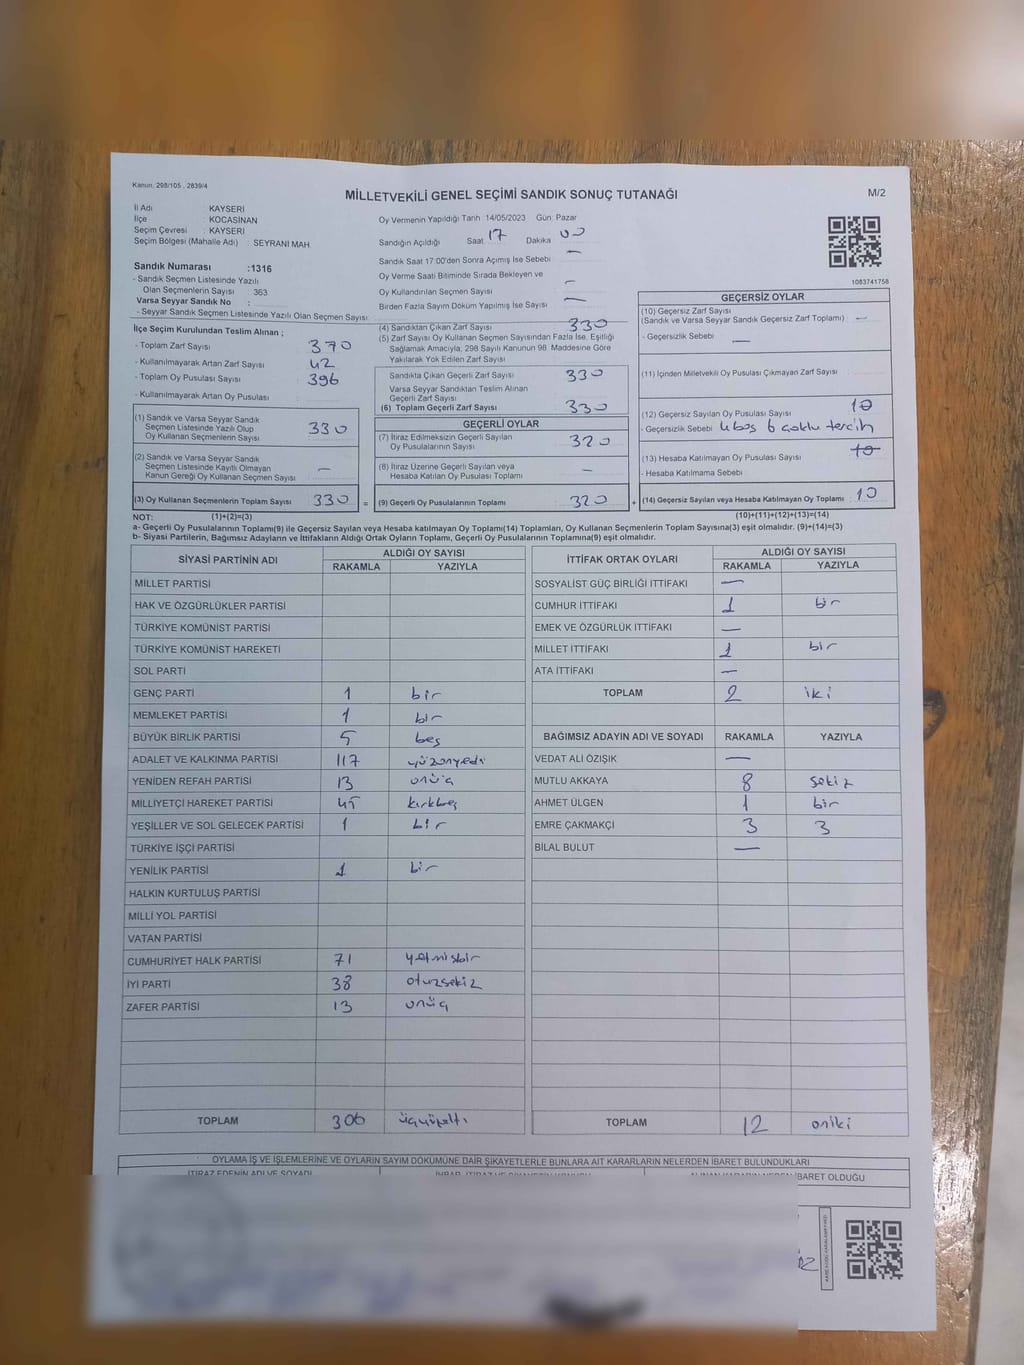 Kanun. 298/105 , 2839/4
MİLLETVEKİLİ GENEL SEÇİMİ SANDIK SONUÇ TUTANAĞI
M/2
İl Adı KAYSERİ
İlçe : KOCASİNAN
Seçim Çevresi : KAYSERİ
Seçim Bölgesi (Mahalle Adı) : SEYRANİ MAH.
Sandık Numarası :1316
- Sandık Seçmen Listesinde Yazılı
Olan Seçmenlerin Sayısı : 363
Varsa Seyyar Sandık No :
- Seyyar Sandık Seçmen Listesinde Yazılı Olan Seçmen Sayısı:
Oy Vermenin Yapıldığı Tarih :14/05/2023 Gün: Pazar
Sandığın Açıldığı Saat 17 Dakika 00
Sandık Saat 17:00'den Sonra Açımış İse Sebebi —
Oy Verme Saati Bitiminde Sırada Bekleyen ve
Oy Kullandırılan Seçmen Sayısı —
Birden Fazla Sayım Döküm Yapılmış İse Sayısı —
1083741758
İlçe Seçim Kurulundan Teslim Alınan ;
- Toplam Zarf Sayısı 370
- Kullanılmayarak Artan Zarf Sayısı 42
- Toplam Oy Pusulası Sayısı 396
- Kullanılmayarak Artan Oy Pusulası
(1) Sandık ve Varsa Seyyar Sandık
Seçmen Listesinde Yazılı Olup
Oy Kullanan Seçmenlerin Sayısı 330
(2) Sandık ve Varsa Seyyar Sandık
Seçmen Listesinde Kayıtlı Olmayan
Kanun Gereği Oy Kullanan Seçmen Sayısı —
(3) Oy Kullanan Seçmenlerin Toplam Sayısı 330 =
(4) Sandıktan Çıkan Zarf Sayısı 330
(5) Zarf Sayısı Oy Kullanan Seçmen Sayısından Fazla İse, Eşitliği
Sağlamak Amacıyla, 298 Sayılı Kanunun 98. Maddesine Göre
Yakılarak Yok Edilen Zarf Sayısı
Sandıkta Çıkan Geçerli Zarf Sayısı 330
Varsa Seyyar Sandıktan Teslim Alınan
Geçerli Zarf Sayısı
(6) Toplam Geçerli Zarf Sayısı 330
GEÇERLİ OYLAR
(7) İtiraz Edilmeksizin Geçerli Sayılan
Oy Pusulalarının Sayısı 320
(8) İtiraz Üzerine Geçerli Sayılan veya
Hesaba Katılan Oy Pusulası Toplamı —
(9) Geçerli Oy Pusulalarının Toplamı 320 +
GEÇERSİZ OYLAR
(10) Geçersiz Zarf Sayısı
(Sandık ve Varsa Seyyar Sandık Geçersiz Zarf Toplamı) —
- Geçersizlik Sebebi —
(11) İçinden Milletvekili Oy Pusulası Çıkmayan Zarf Sayısı
(12) Geçersiz Sayılan Oy Pusulası Sayısı 10
- Geçersizlik Sebebi 4 boş 6 çoklu tercih
(13) Hesaba Katılmayan Oy Pusulası Sayısı 10
- Hesaba Katılmama Sebebi
(14) Geçersiz Sayılan veya Hesaba Katılmayan Oy Toplamı : 10
NOT: (1)+(2)=(3) (10)+(11)+(12)+(13)=(14)
a- Geçerli Oy Pusulalarının Toplamı(9) ile Geçersiz Sayılan veya Hesaba katılmayan Oy Toplamı(14) Toplamları, Oy Kullanan Seçmenlerin Toplam Sayısına(3) eşit olmalıdır. (9)+(14)=(3)
b- Siyasi Partilerin, Bağımsız Adayların ve İttifakların Aldığı Ortak Oyların Toplamı, Geçerli Oy Pusulalarının Toplamına(9) eşit olmalıdır.
SİYASİ PARTİNİN ADI ALDIĞI OY SAYISI
RAKAMLA YAZIYLA
MİLLET PARTİSİ
HAK VE ÖZGÜRLÜKLER PARTİSİ
TÜRKİYE KOMÜNİST PARTİSİ
TÜRKİYE KOMÜNİST HAREKETİ
SOL PARTİ
GENÇ PARTİ 1 bir
MEMLEKET PARTİSİ 1 bir
BÜYÜK BİRLİK PARTİSİ 5 beş
ADALET VE KALKINMA PARTİSİ 117 yüzonyedi
YENİDEN REFAH PARTİSİ 13 onüç
MİLLİYETÇİ HAREKET PARTİSİ 45 kırkbeş
YEŞİLLER VE SOL GELECEK PARTİSİ 1 bir
TÜRKİYE İŞÇİ PARTİSİ
YENİLİK PARTİSİ 1 bir
HALKIN KURTULUŞ PARTİSİ
MİLLİ YOL PARTİSİ
VATAN PARTİSİ
CUMHURİYET HALK PARTİSİ 71 yetmişbir
İYİ PARTİ 38 otuzsekiz
ZAFER PARTİSİ 13 onüç
TOPLAM 306 üçyüzaltı
İTTİFAK ORTAK OYLARI ALDIĞI OY SAYISI
RAKAMLA YAZIYLA
SOSYALİST GÜÇ BİRLİĞİ İTTİFAKI —
CUMHUR İTTİFAKI 1 bir
EMEK VE ÖZGÜRLÜK İTTİFAKI —
MİLLET İTTİFAKI 1 bir
ATA İTTİFAKI —
TOPLAM 2 iki
BAĞIMSIZ ADAYIN ADI VE SOYADI RAKAMLA YAZIYLA
VEDAT ALİ ÖZIŞIK —
MUTLU AKKAYA 8 sekiz
AHMET ÜLGEN 1 bir
EMRE ÇAKMAKÇİ 3 3
BİLAL BULUT —
TOPLAM 12 oniki
OYLAMA İŞ VE İŞLEMLERİNE VE OYLARIN SAYIM DÖKÜMÜNE DAİR ŞİKAYETLERLE BUNLARA AİT KARARLARIN NELERDEN İBARET BULUNDUKLARI
İTİRAZ EDENİN ADI VE SOYADI
İBARET OLDUĞU